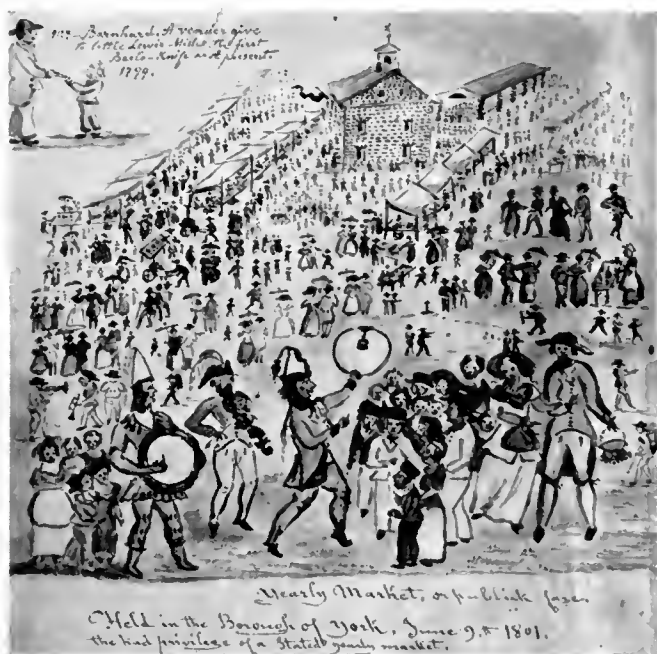 Barnhard. A vender give
to little Lewis Miller the first
Barlo-Knife as A present.
1799.
Yearly Market, or publick fare.
Held in the Borough of York, June 9.th 1801.
the kind privilege of a Stated yearly market.